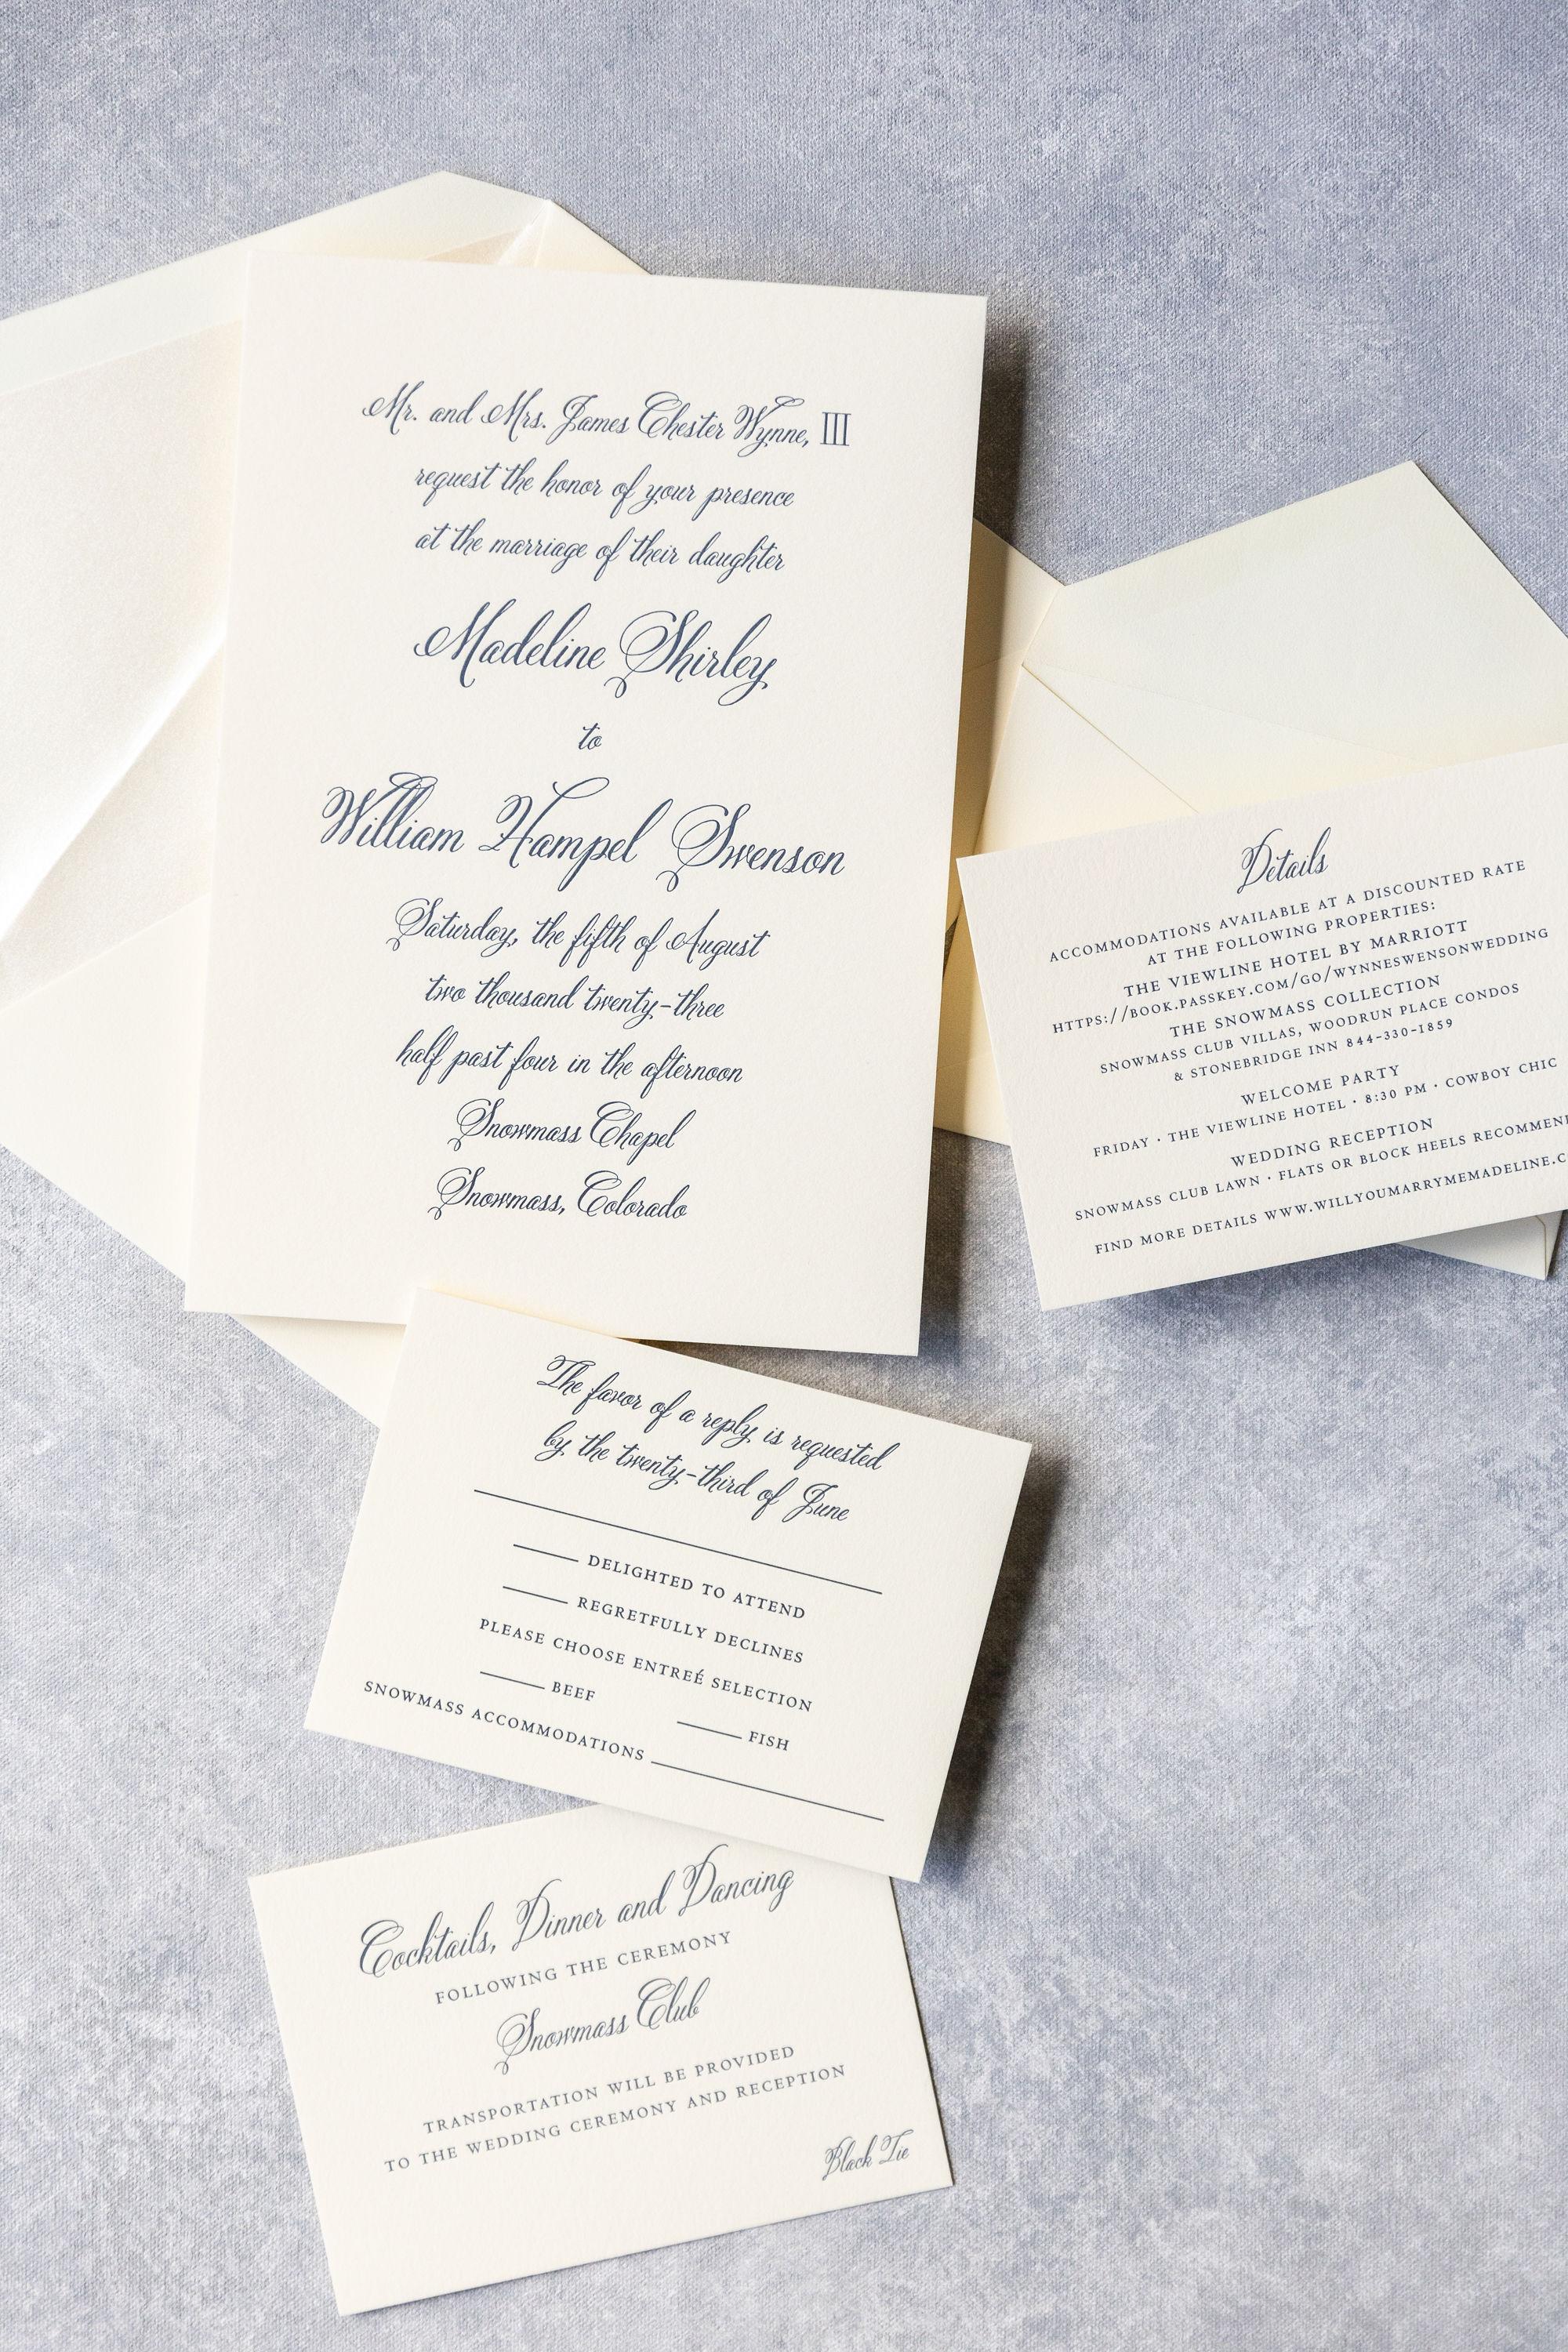 Mr. and Mrs. James Chester Wynne, III
request the honor of your presence
at the marriage of their daughter
Madeline Shirley
to
William Hampel Swenson
Saturday, the fifth of August
two thousand twenty-three
half past four in the afternoon
Snowmass Chapel
Snowmass, Colorado
Details
ACCOMMODATIONS AVAILABLE AT A DISCOUNTED RATE
AT THE FOLLOWING PROPERTIES:
THE VIEWLINE HOTEL BY MARRIOTT
HTTPS://BOOK.PASSKEY.COM/GO/WYNNESWENSONWEDDING
THE SNOWMASS COLLECTION
SNOWMASS CLUB VILLAS, WOODRUN PLACE CONDOS
& STONEBRIDGE INN 844-330-1859
WELCOME PARTY
FRIDAY · THE VIEWLINE HOTEL · 8:30 PM · COWBOY CHIC
WEDDING RECEPTION
SNOWMASS CLUB LAWN · FLATS OR BLOCK HEELS RECOMMEN
FIND MORE DETAILS WWW.WILLYOUMARRYMEMADELINE.C
The favor of a reply is requested
by the twenty-third of June
DELIGHTED TO ATTEND
REGRETFULLY DECLINES
PLEASE CHOOSE ENTREÉ SELECTION
BEEF
FISH
SNOWMASS ACCOMMODATIONS
Cocktails, Dinner and Dancing
FOLLOWING THE CEREMONY
Snowmass Club
TRANSPORTATION WILL BE PROVIDED
TO THE WEDDING CEREMONY AND RECEPTION
Black Tie